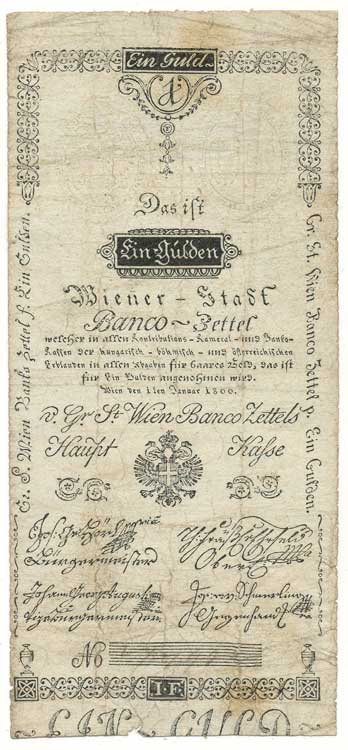 Ein Guld
1
Das ist
Ein Gulden
Wiener - Stadt
Banco - Zettel
welcher in allen Kontributions - Kameral - und Banko-
Kassen der hungarisch - böhmisch - und österreichischen
Erblanden in allen Abgaben für baares Geld, das ist
für Ein Gulden angenohmen wird.
Wien den 1ten Januar 1800.
v. Gr St. Wien Banco Zettels
Haupt Kasse
Gr. S. Wien Banko Zettel p. Ein Gulden.
Gr. St. Wien Banco Zettel p. Ein Gulden.
Bürgermeister
Ober
Johann Georg Augusti
Vizebürgermeister
Gegenhand
No
I-F
EIN GULD